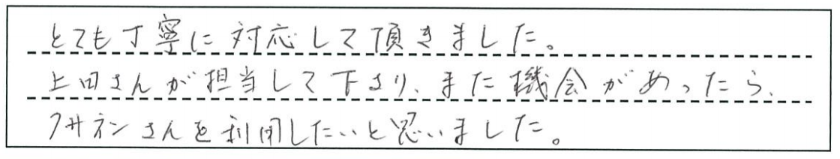 とても丁寧に対応して頂きました。
上田さんが担当して下さり、また機会があったら、
フサネンさんを利用したいと思いました。